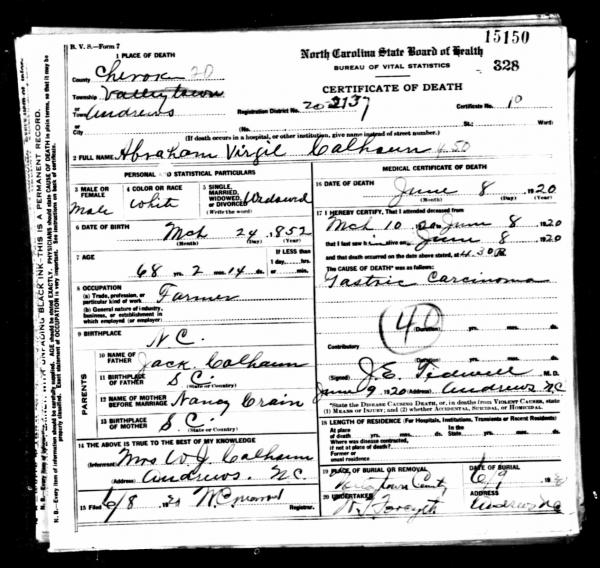 15150
B. V. S.—Form 7
North Carolina State Board of Health
BUREAU OF VITAL STATISTICS
328
1 PLACE OF DEATH
CERTIFICATE OF DEATH
County Cherok 20
Township Valleytown
or Town Andrews
Registration District No. 20-2137
Certificate No. 10
or City
(No. St.; Ward)
(If death occurs in a hospital, or other institution, give name instead of street number.)
2 FULL NAME Abraham Virgil Calhoun
PERSONAL AND STATISTICAL PARTICULARS
3 MALE OR FEMALE Male
4 COLOR OR RACE White
5 SINGLE, MARRIED, WIDOWED OR DIVORCED (Write the word) Widowed
6 DATE OF BIRTH Mch 24, 1852
(Month) (Day) (Year)
7 AGE
68 yrs. 2 mos. 14 ds.
If LESS than 1 day, hrs. or min.
8 OCCUPATION
(a) Trade, profession, or particular kind of work Farmer
(b) General nature of industry, business, or establishment in which employed (or employer)
9 BIRTHPLACE
N C.
PARENTS
10 NAME OF FATHER Jack Calhoun
11 BIRTHPLACE OF FATHER S C.
(State or Country)
12 NAME OF MOTHER BEFORE MARRIAGE Nancy Crain
13 BIRTHPLACE OF MOTHER S C.
(State or Country)
14 THE ABOVE IS TRUE TO THE BEST OF MY KNOWLEDGE
(Informant) Mrs W J. Calhoun
(Address) Andrews, N.C.
15 Filed 6/8 1920
Registrar.
MEDICAL CERTIFICATE OF DEATH
16 DATE OF DEATH
June 8, 1920
(Month) (Day) (Year)
17 I HEREBY CERTIFY, That I attended deceased from
Mch 10 to June 8 1920
that I last saw him alive on June 8 1920
and that death occurred on the date above stated, at 4.30 P
The CAUSE OF DEATH* was as follows:
Gastric Carcinoma
40
(Duration) yrs. mos. ds.
Contributory
(Duration) yrs. mos. ds.
(Signed) J.E. Tidwell M. D.
June 9 1920 Andrews N C
*State the DISEASE CAUSING DEATH, or, in deaths from VIOLENT CAUSES, state (1) MEANS OF INJURY; and (2) whether ACCIDENTAL, SUICIDAL, or HOMICIDAL.
18 LENGTH OF RESIDENCE (For Hospitals, Institutions, Transients or Recent Residents)
At place of death yrs. mos. ds. State yrs. mos. ds.
Where was disease contracted, if not at place of death?
Former or usual residence
19 PLACE OF BURIAL OR REMOVAL
DATE OF BURIAL
6/9 1920
20 UNDERTAKER
ADDRESS
Andrews NC